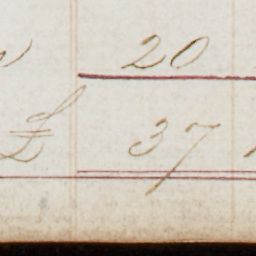 20
£ 37